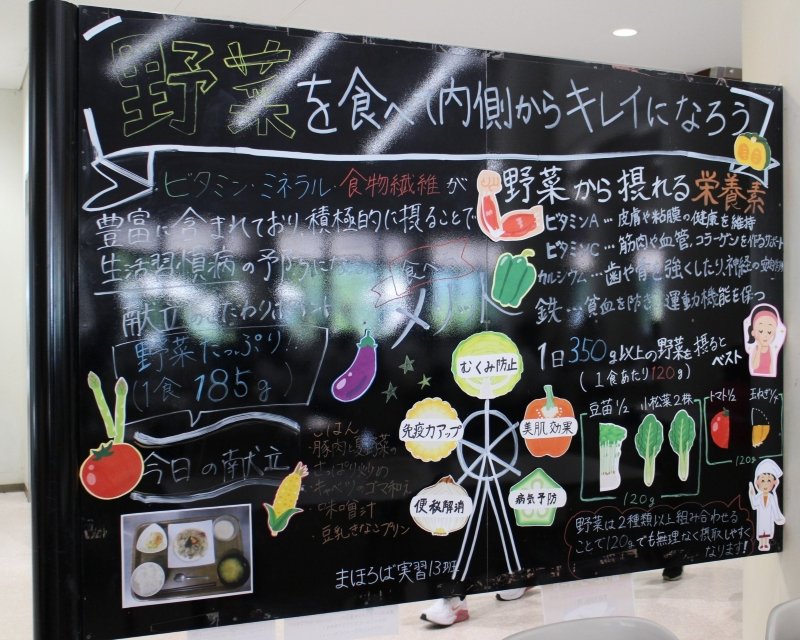 野菜を食べて内側からキレイになろう
ビタミン・ミネラル・食物繊維が
豊富に含まれており、積極的に摂ることで
生活習慣病の予防になる
食べる
メリット
献立のこだわりポイント
野菜たっぷり!!
(1食 185g)
今日の献立
・ごはん
・豚肉と夏野菜の
さっぱり炒め
・キャベツのゴマ和え
・味噌汁
・豆乳きなこプリン
まほろば実習13班
むくみ防止
免疫力アップ
美肌効果
便秘解消
病気予防
野菜から摂れる栄養素
ビタミンA…皮膚や粘膜の健康を維持
ビタミンC…筋肉や血管、コラーゲンを作るサポート
カルシウム…歯や骨を強くしたり、神経の安定
鉄…貧血を防ぎ、運動機能を保つ
1日350g以上の野菜を摂ると
ベスト
(1食あたり120g)
豆苗1/2 小松菜2株
120g
トマト1/2 玉ねぎ1/2
120g
野菜は2種類以上組み合わせる
ことで120gでも無理なく摂取しやすく
なります!